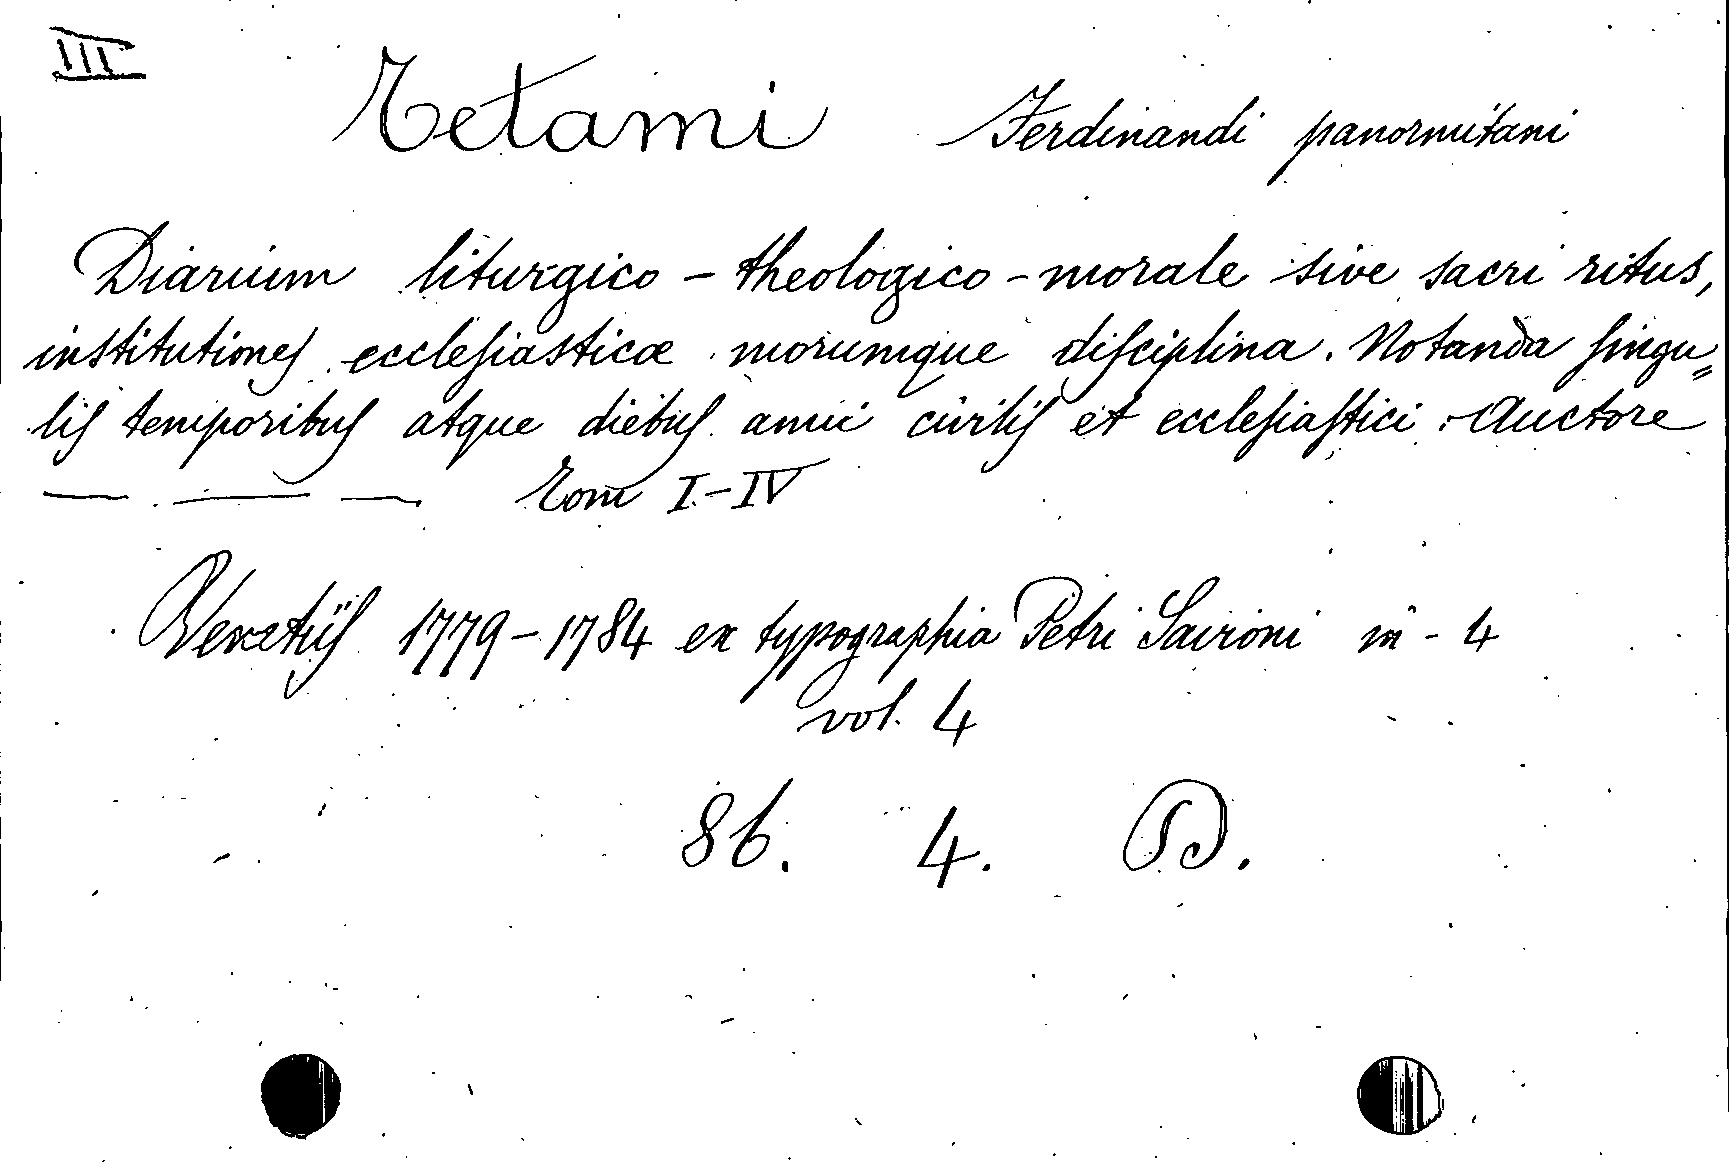 III
Tetami Ferdinandi panormitani
Diarium liturgico - theologico - morale sive sacri ritus,
institutioneſ eccleſiasticæ morumque diſciplina. Notanda ſingu„
liſ temporibuſ atque diebuſ anni civiliſ et eccleſiaſtici. Auctore
— — — Tom I-IV
Venetiiſ 1779-1784 ex typographia Petri Savioni in - 4
vol. 4
86. 4. D.